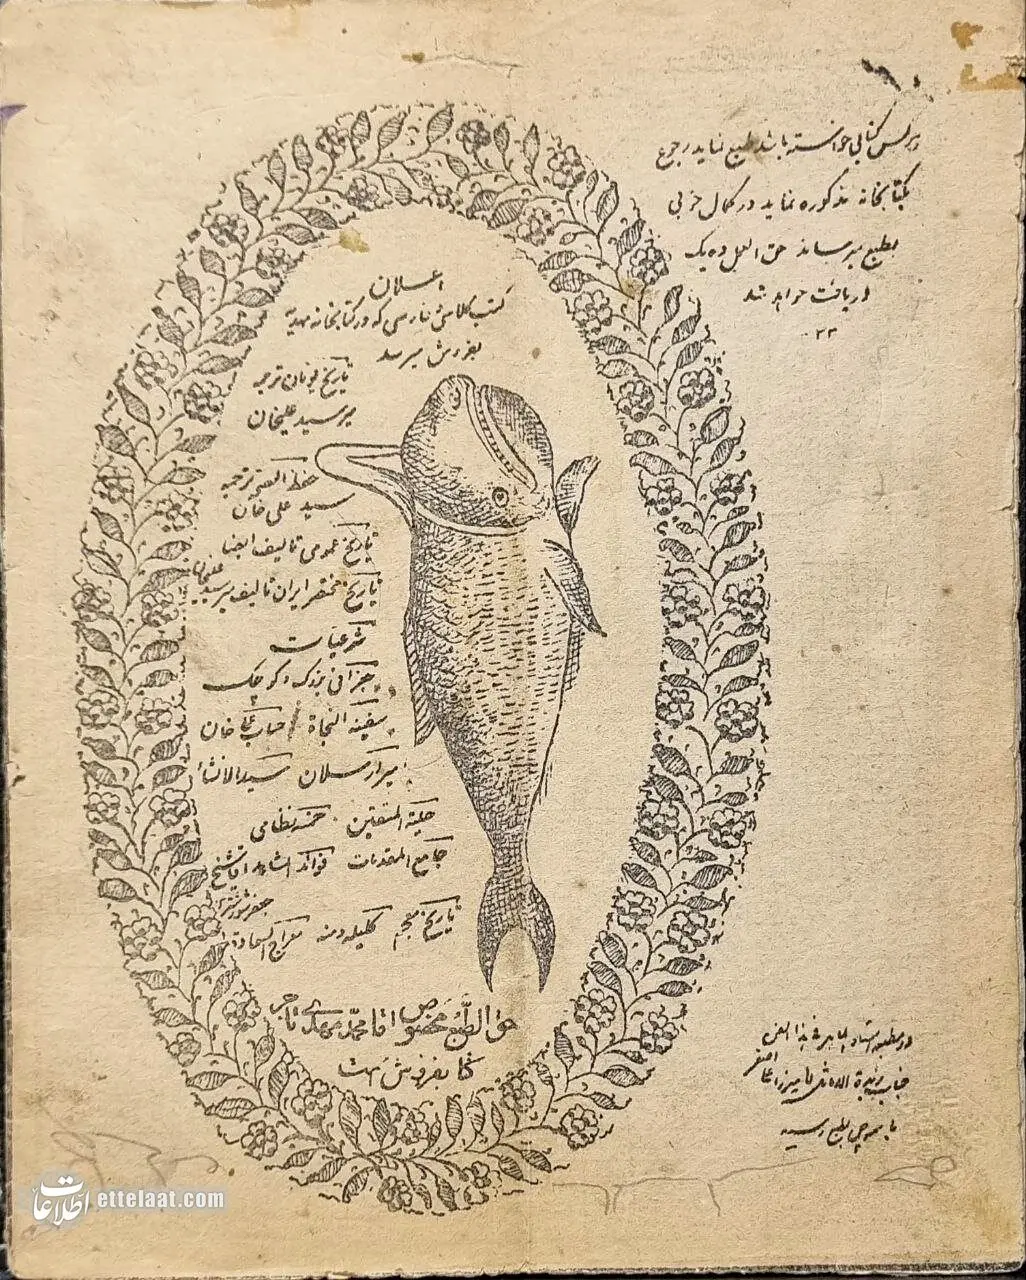 هر کس کتابی خواسته باشد طبع نماید رجوع
بکتابخانه مذکوره نماید در کمال خوبی
بطبع میرساند حق العمل ده یک
دریافت خواهد شد
۲۳
اعلان
کتب کلاسی فارسی که در کتابخانه مهدیه
بفروش میرسد
تاریخ یونان ترجمه
میر سید علیخان
حفظ الصحه ترجمه
سید علی خان
تاریخ عمومی تالیف ایضا
تاریخ مختصر ایران تالیف میر سید علیخان
شرعیات
جغرافی بزرک و کوچک
سفینة النجاة حساب خان
میر ارسلان سیدالانشاء
حلیة المتقین خمسه نظامی
جامع المقدمات فوائد المشاهد اقا شیخ
جعفر شوشتری
تاریخ معجم کلیله و دمنه معراج السعاده
حق الطبع مخصوص اقا محمد مهدی تاجر
کتابفروش است
در مطبعه استاد الماهر فی هذا الفن
جناب میرزا علی اصغر
باسمه چی بطبع رسید
اطلاعات ettelaat.com